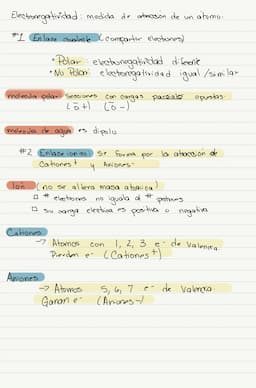 Electronegatividad: medida de atracción de un átomo.
#1 Enlace covalente (compartir electrones)
• Polar: electronegatividad diferente
• No Polar: electronegatividad igual/similar
molécula polar: secciones con cargas parciales opuestas.
(δ+) (δ-)
molécula de agua es dipolo
#2 Enlace iónico: Se forma por la atracción de
Cationes+ y Aniones-
Ion (no se altera masa atómica)
□ # electrones no iguala al # protones
□ su carga eléctrica es positiva o negativa
Cationes
→ Atomos con 1, 2, 3 e- de valencia.
Pierden e- (Cationes+)
Aniones
→ Atomos 5, 6, 7 e- de valencia.
Ganan e- (Aniones-)